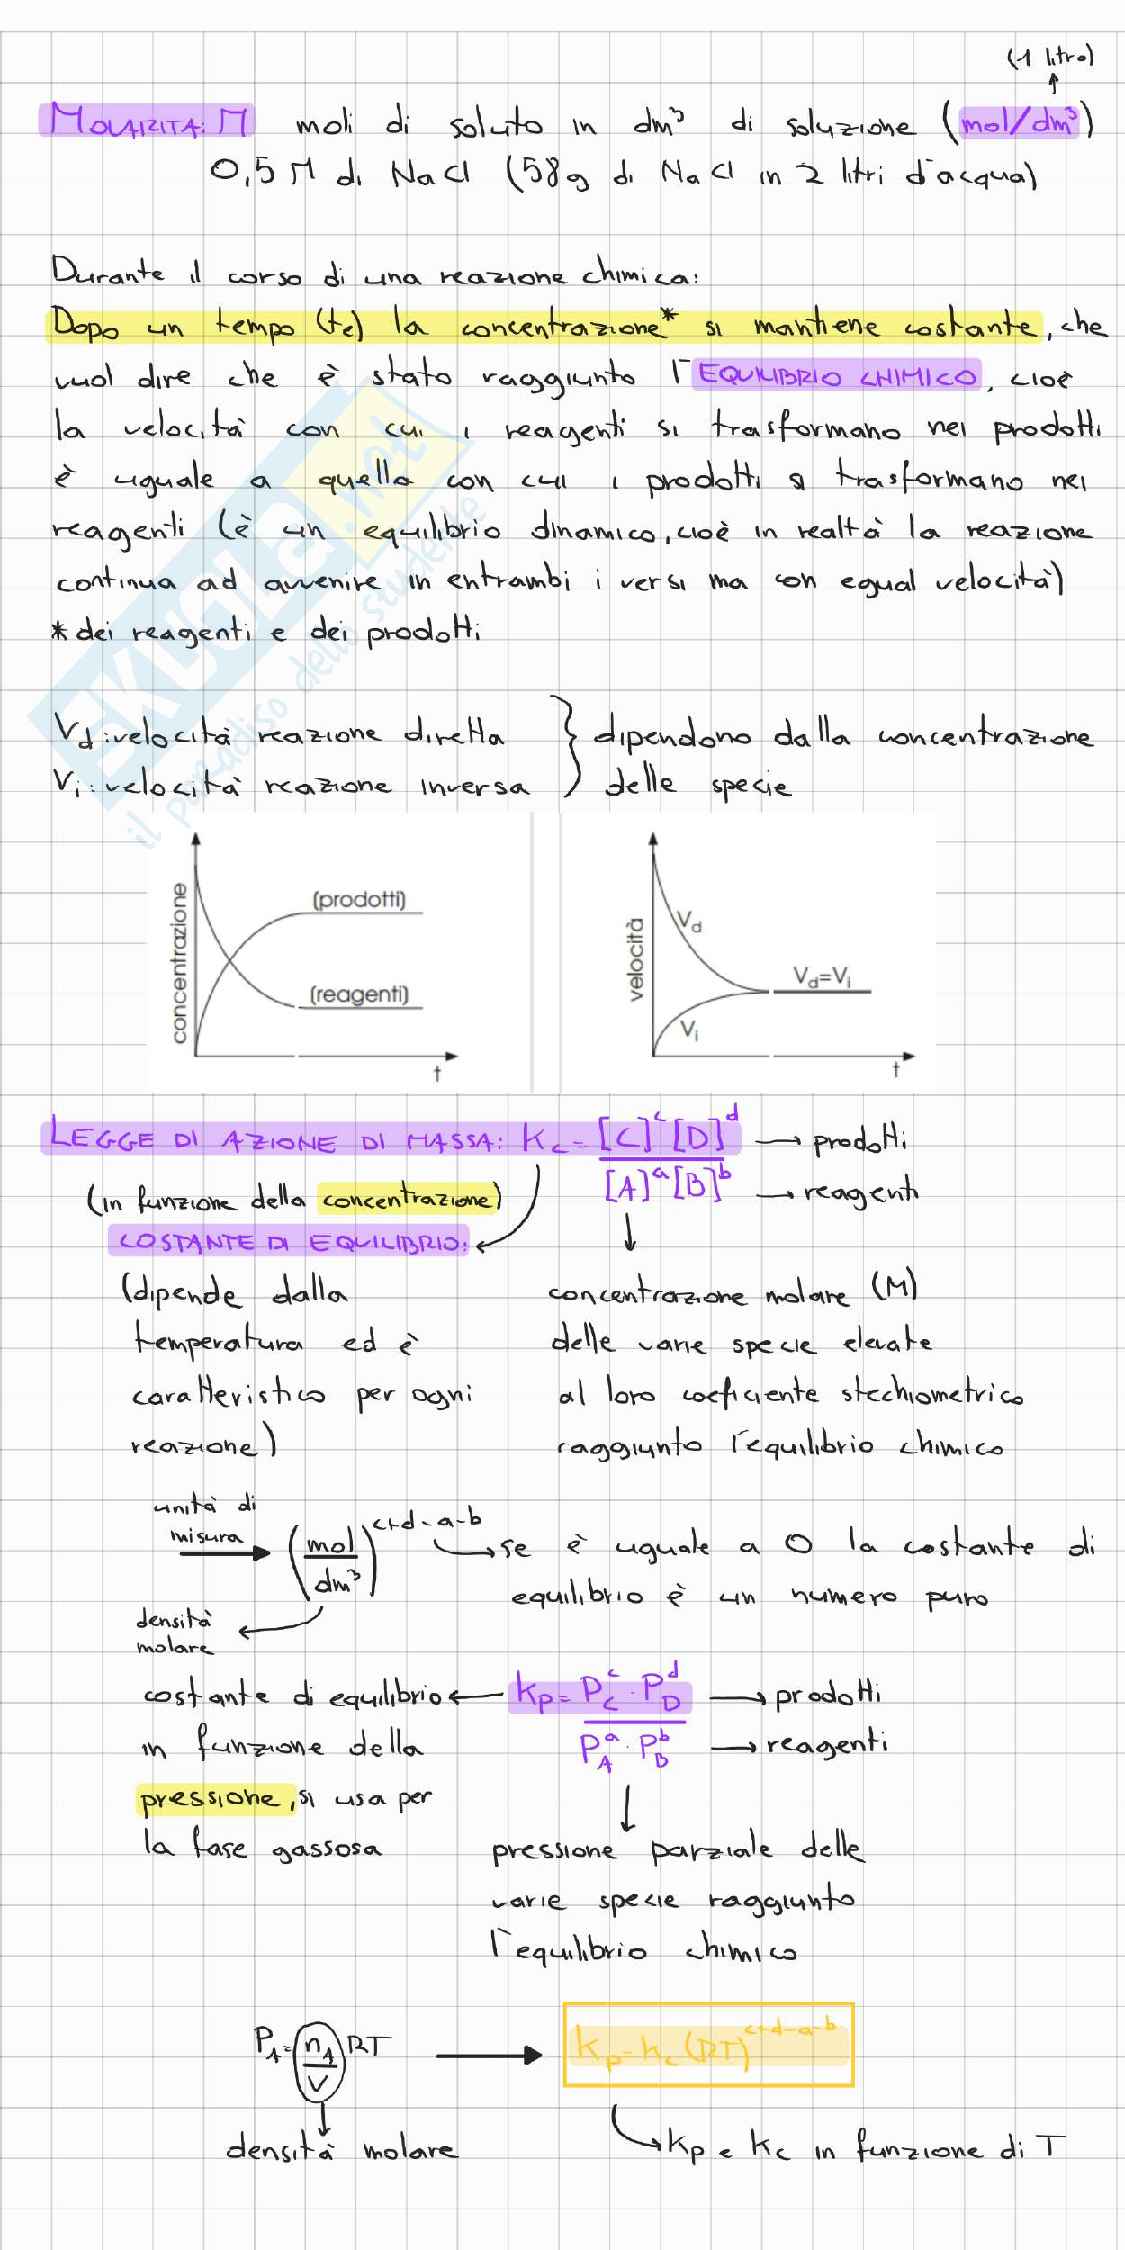 (1 litro)
MOLARITA: M moli di soluto in dm³ di soluzione (mol/dm³)
0,5 M di NaCl (58g di NaCl in 2 litri d'acqua)
Durante il corso di una reazione chimica:
Dopo un tempo (te) la concentrazione* si mantiene costante, che
vuol dire che è stato raggiunto l'EQUILIBRIO CHIMICO, cioè
la velocità con cui i reagenti si trasformano nei prodotti
è uguale a quella con cui i prodotti si trasformano nei
reagenti (è un equilibrio dinamico, cioè in realtà la reazione
continua ad avvenire in entrambi i versi ma con egual velocità)
*dei reagenti e dei prodotti
SKUOLA.net
il paradiso dello studente
Vd: velocità reazione diretta } dipendono dalla concentrazione
Vi: velocità reazione inversa } delle specie
concentrazione (prodotti) (reagenti) t
velocità Vd Vi Vd=Vi t
LEGGE DI AZIONE DI MASSA: Kc = [C]ᶜ [D]ᵈ → prodotti
[A]ᵃ [B]ᵇ → reagenti
(in funzione della concentrazione)
COSTANTE DI EQUILIBRIO:
(dipende dalla
temperatura ed è
caratteristico per ogni
reazione)
concentrazione molare (M)
delle varie specie elevate
al loro coeficiente stechiometrico
raggiunto l'equilibrio chimico
unità di
misura
(mol/dm³)^c+d-a-b → se è uguale a 0 la costante di
equilibrio è un numero puro
densità
molare
costante di equilibrio ← Kp = P_C^c · P_D^d → prodotti
P_A^a · P_B^b → reagenti
in funzione della
pressione, si usa per
la fase gassosa
pressione parziale delle
varie specie raggiunto
l'equilibrio chimico
P_A = n_A/V RT → Kp = Kc (RT)^c+d-a-b
densità molare
Kp e Kc in funzione di T